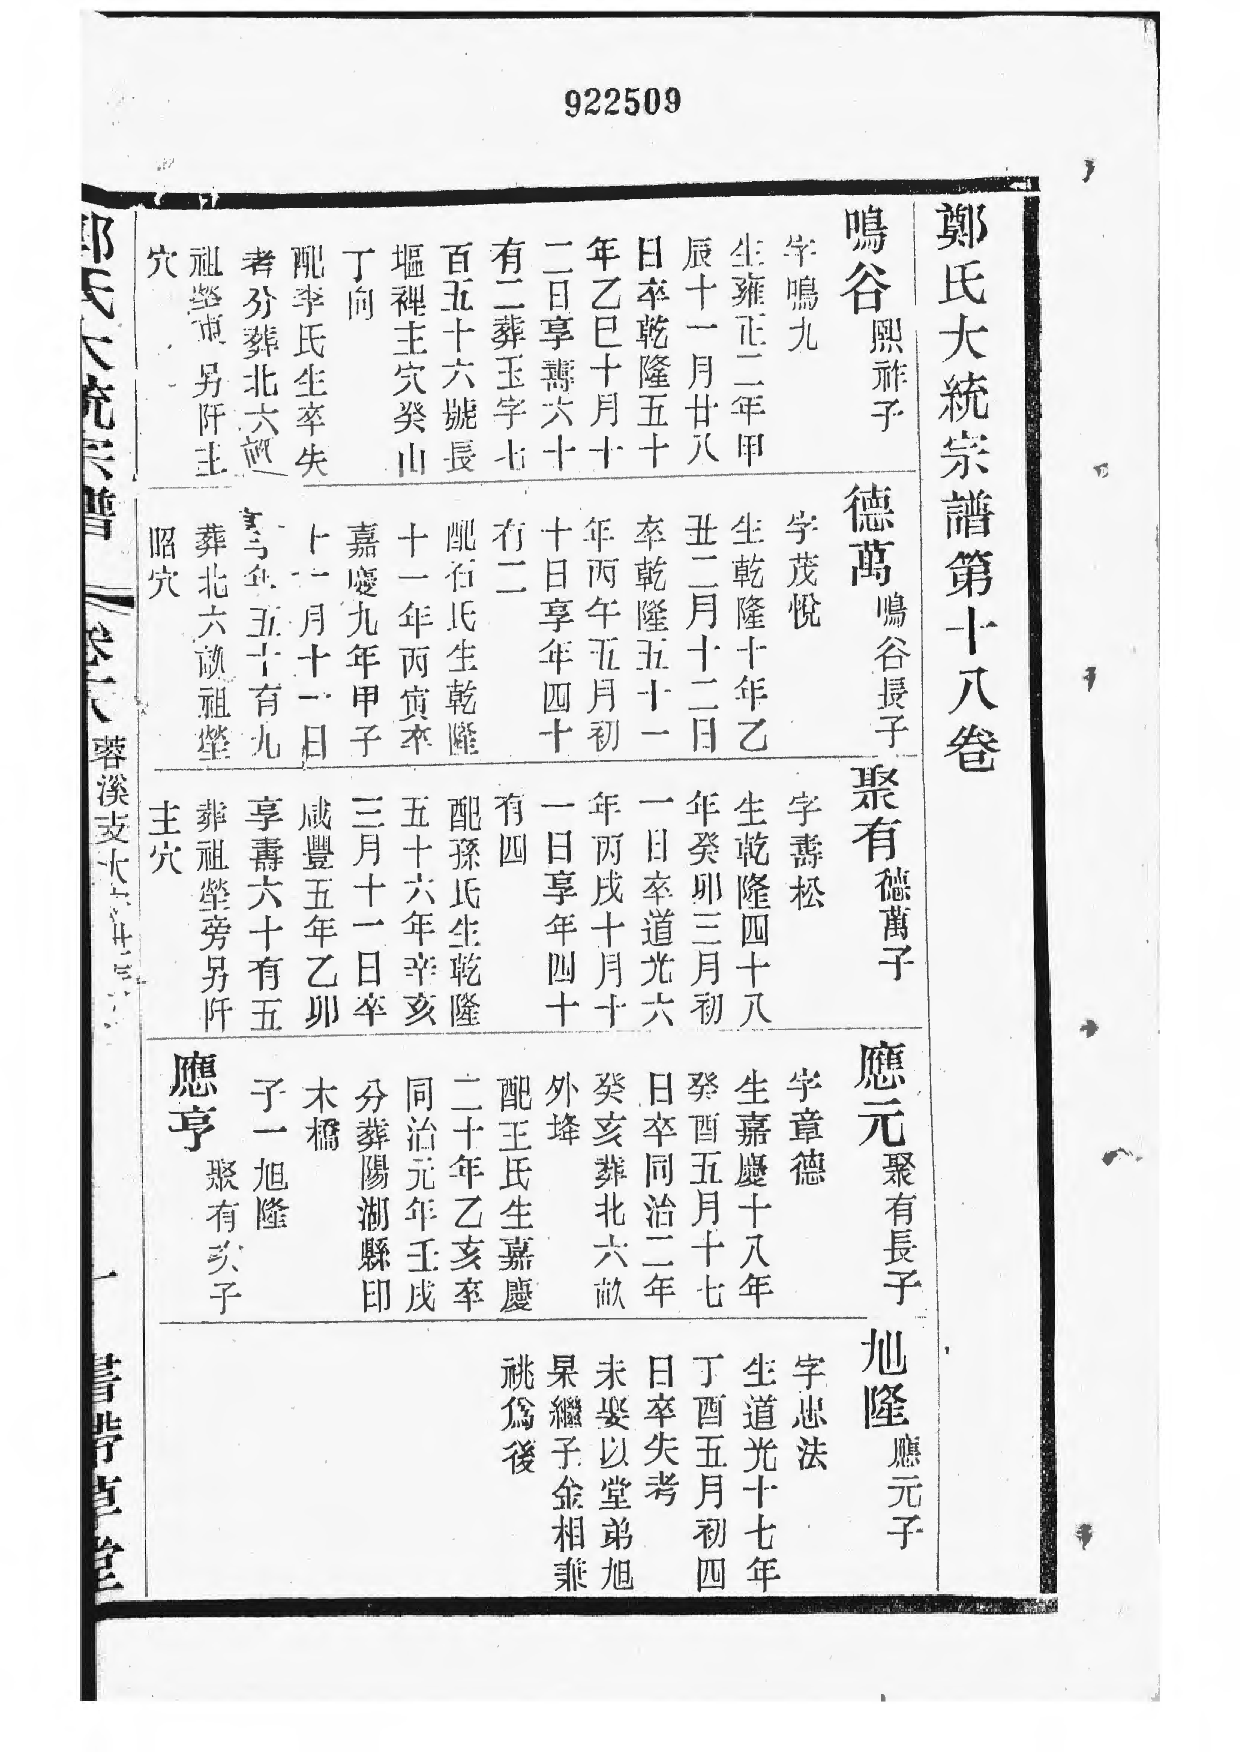 922509
鄭氏大統宗譜第十八卷
鳴谷 熙祚子
字鳴九
生雍正二年甲
辰十一月廿八
日卒乾隆五十
年乙巳十月十
二日享壽六十
有二葬玉字七
百五十六號長
堰裡主穴癸山
丁向
配李氏生卒失
考分葬北六畝
祖塋東另阡主
穴
德萬 鳴谷長子
字茂悅
生乾隆十年乙
丑二月十二日
卒乾隆五十一
年丙午五月初
十日享年四十
有二
配石氏生乾隆
十一年丙寅卒
嘉慶九年甲子
十一月十一日
享年五十有九
葬北六畝祖塋
昭穴
聚有 德萬子
字壽松
生乾隆四十八
年癸卯三月初
一日卒道光六
年丙戌十月十
一日享年四十
有四
配孫氏生乾隆
五十六年辛亥
三月十一日卒
咸豐五年乙卯
享壽六十有五
葬祖塋旁另阡
主穴
應元 聚有長子
字章德
生嘉慶十八年
癸酉五月十七
日卒同治二年
癸亥葬北六畝
外埄
配王氏生嘉慶
二十年乙亥卒
同治元年壬戌
分葬陽湖縣印
木橋
子一 旭隆
應亨 聚有次子
旭隆 應元子
字忠法
生道光十七年
丁酉五月初四
日卒失考
未娶以堂弟旭
杲繼子金相兼
祧爲後
鄭氏大統宗譜
卷十八 蓉溪支
一
書帶草堂